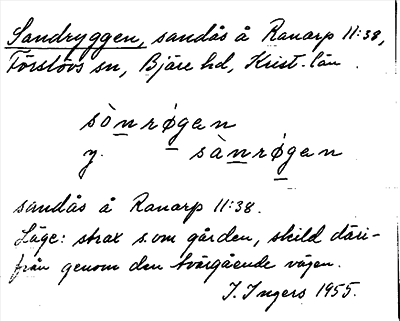 Sandryggen, sandås å Ranarp 11:38,
Förslövs sn, Bjäre hd, Krist. län.
sònrøgen
y. sànrøgen
sandås å Ranarp 11:38.
Läge: strax s.om gården, skild däri-
från genom den tvärgående vägen.
I. Ingers 1955.